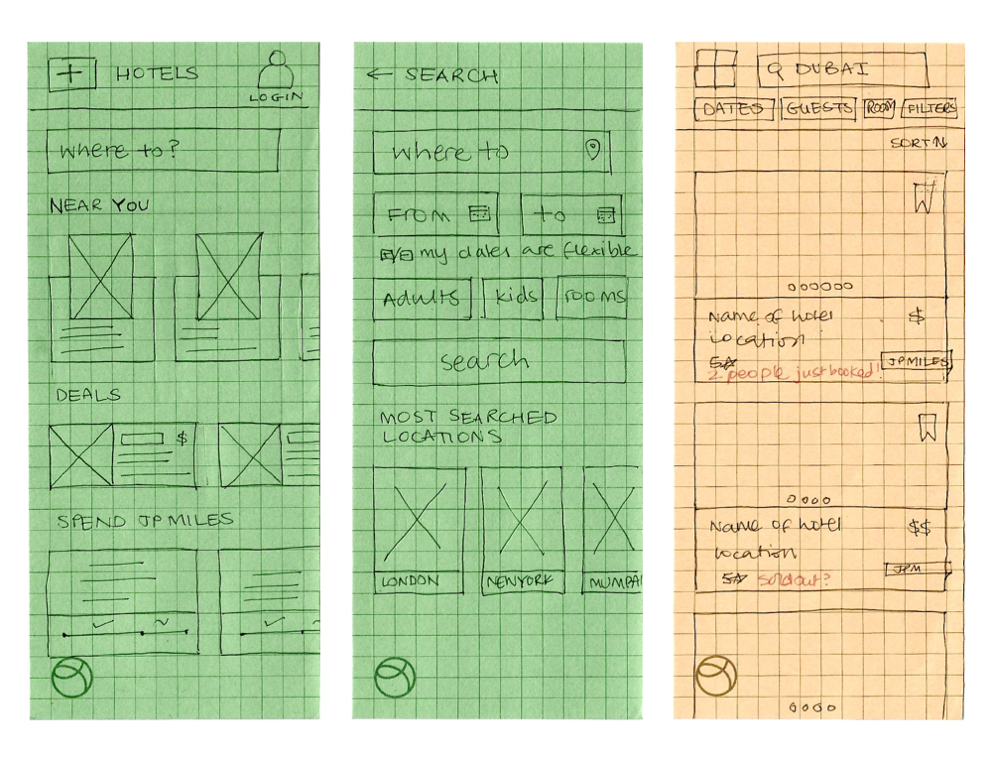 HOTELS
LOGIN
where to?
NEAR YOU
DEALS
$
SPEND JPMILES
← SEARCH
where to
From
to
my dates are flexible
Adults
kids
rooms
search
MOST SEARCHED
LOCATIONS
LONDON
NEWYORK
MUMBA
DUBAI
DATES
GUESTS
ROOM
FILTERS
SORT
Name of hotel
$
Location
5☆
JPMILES
2 people just booked!
Name of hotel
$$
location
JPM
5☆ soldout?